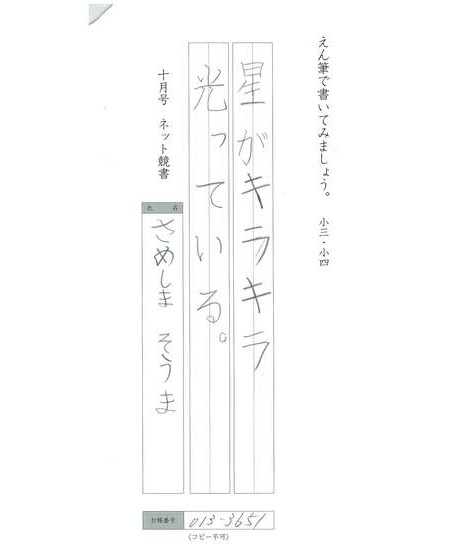 えん筆で書いてみましょう。 小三・小四
星がキラキラ
光っている。
十月号 ネット競書
氏名
さめしま そうま
台帳番号 013-3651
(コピー不可)